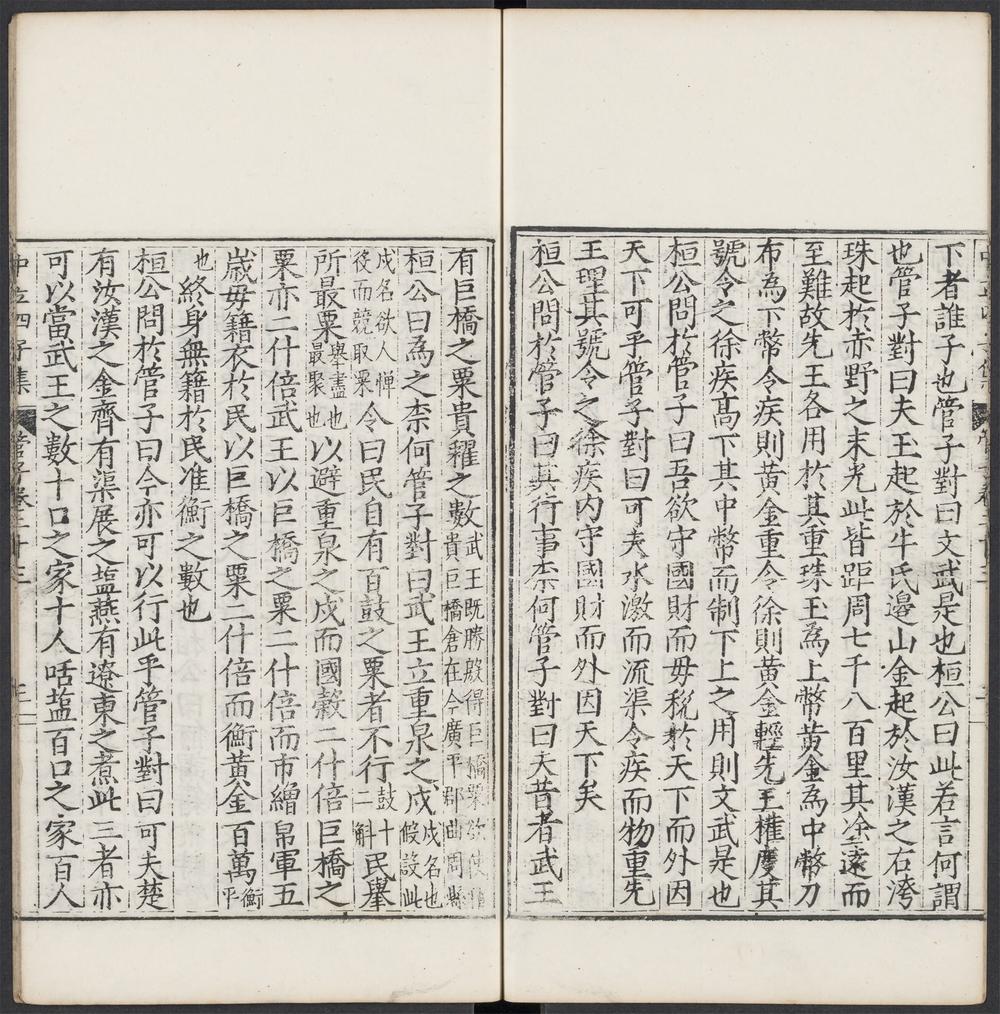 下者誰子也管子對曰文武是也桓公曰此若言何謂
也管子對曰夫玉起於牛氏邊山金起於汝漢之右洿
珠起於赤野之末光此皆距周七千八百里其塗遠而
至難故先王各用於其重珠玉為上幣黃金為中幣刀
布為下幣令疾則黃金重令徐則黃金輕先王權度其
號令之徐疾高下其中幣而制下上之用則文武是也
桓公問於管子曰吾欲守國財而毋稅於天下而外因
天下可乎管子對曰可夫水激而流渠令疾而物重先
王理其號令之徐疾內守國財而外因天下矣
桓公問於管子曰其行事柰何管子對曰夫昔者武王
有巨橋之粟貴糴之數武王既勝殷得巨橋粟欲使糴貴巨橋倉在今廣平郡曲周縣
桓公曰為之柰何管子對曰武王立重泉之戍戍名也假設此
戍名欲人憚後而競取粟令曰民自有百鼓之粟者不行鼓十二斛民舉
所最粟舉盡也最聚也以避重泉之戍而國穀二什倍巨橋之
粟亦二什倍武王以巨橋之粟二什倍而市繒帛軍五
歲毋籍衣於民以巨橋之粟二什倍而衡黃金百萬衡平
也終身無籍於民准衡之數也
桓公問於管子曰今亦可以行此乎管子對曰可夫楚
有汝漢之金齊有渠展之塩燕有遼東之煮此三者亦
可以當武王之數十口之家十人咶塩百口之家百人
中立四子集 管子卷二十三 三